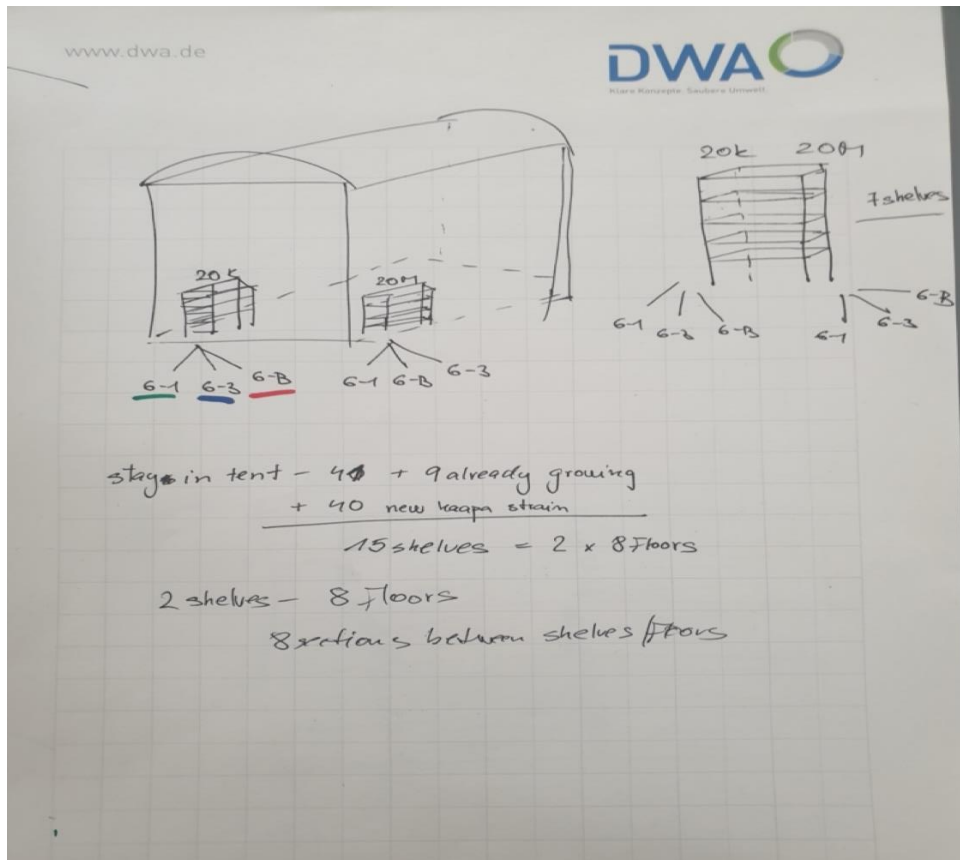 www.dwa.de
DWA
Klare Konzepte. Saubere Umwelt.
20k 20M
7 shelves
6-1 6-3 6-B 6-1 6-3 6-B
20k 20M
6-1 6-3 6-B 6-1 6-B 6-3
in tent - + 9 already growing
+ 40 new kaapa strain
15 shelves = 2 x 8 Floors
2 shelves - 8 Floors
8 sections between shelves/Floors